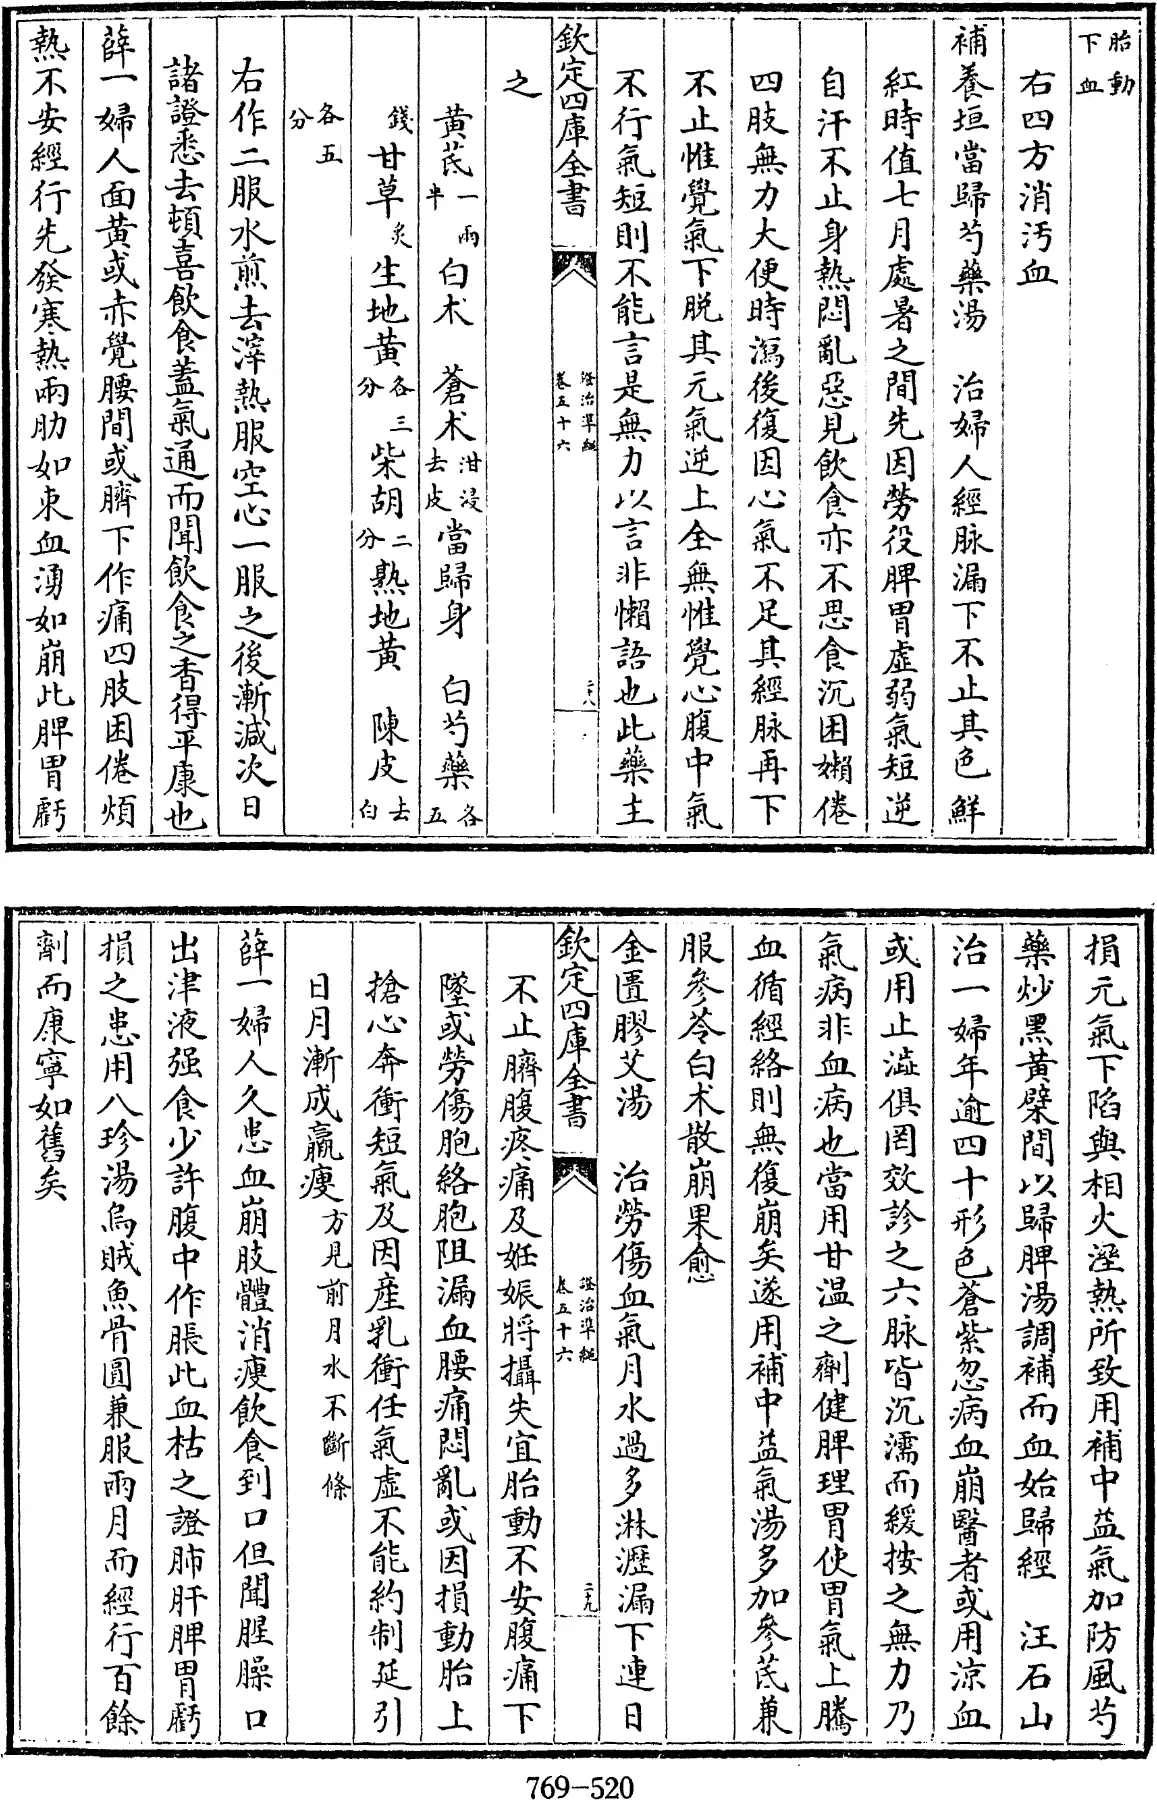 胎動下血
右四方消汚血
補養垣當歸芍藥湯　治婦人經脉漏下不止其色鮮
紅時值七月處暑之間先因勞役脾胃虛弱氣短逆
自汗不止身熱悶亂惡見飲食亦不思食沉困嬾倦
四肢無力大便時瀉後復因心氣不足其經脉再下
不止惟覺氣下脱其元氣逆上全無惟覺心腹中氣
不行氣短則不能言是無力以言非懶語也此藥主
欽定四庫全書　證治準繩卷五十六　二十八
之
黄芪一兩半　白术　蒼术泔浸去皮　當歸身　白芍藥各五
錢　甘草炙　生地黄各三分　柴胡二分　熟地黄　陳皮去白
各五分
右作二服水煎去滓熱服空心一服之後漸減次日
諸證悉去頓喜飲食蓋氣通而聞飲食之香得平康也
薛一婦人面黄或赤覺腰間或臍下作痛四肢困倦煩
熱不安經行先發寒熱兩肋如束血湧如崩此脾胃虧
損元氣下陷與相火溼熱所致用補中益氣加防風芍
藥炒黑黄檗間以歸脾湯調補而血始歸經　汪石山
治一婦年逾四十形色蒼紫忽病血崩醫者或用涼血
或用止澁俱罔效診之六脉皆沉濡而緩按之無力乃
氣病非血病也當用甘温之劑健脾理胃使胃氣上騰
血循經絡則無復崩矣遂用補中益氣湯多加參芪兼
服參苓白术散崩果愈
金匱膠艾湯　治勞傷血氣月水過多淋瀝漏下連日
欽定四庫全書　證治準繩卷五十六　二十九
不止臍腹疼痛及妊娠將攝失宜胎動不安腹痛下
墜或勞傷胞絡胞阻漏血腰痛悶亂或因損動胎上
搶心奔衝短氣及因産乳衝任氣虛不能約制延引
日月漸成羸瘦方見前月水不斷條
薛一婦人久患血崩肢體消瘦飲食到口但聞腥臊口
出津液强食少許腹中作脹此血枯之證肺肝脾胃虧
損之患用八珍湯烏賊魚骨圓兼服兩月而經行百餘
劑而康寧如舊矣
769-520